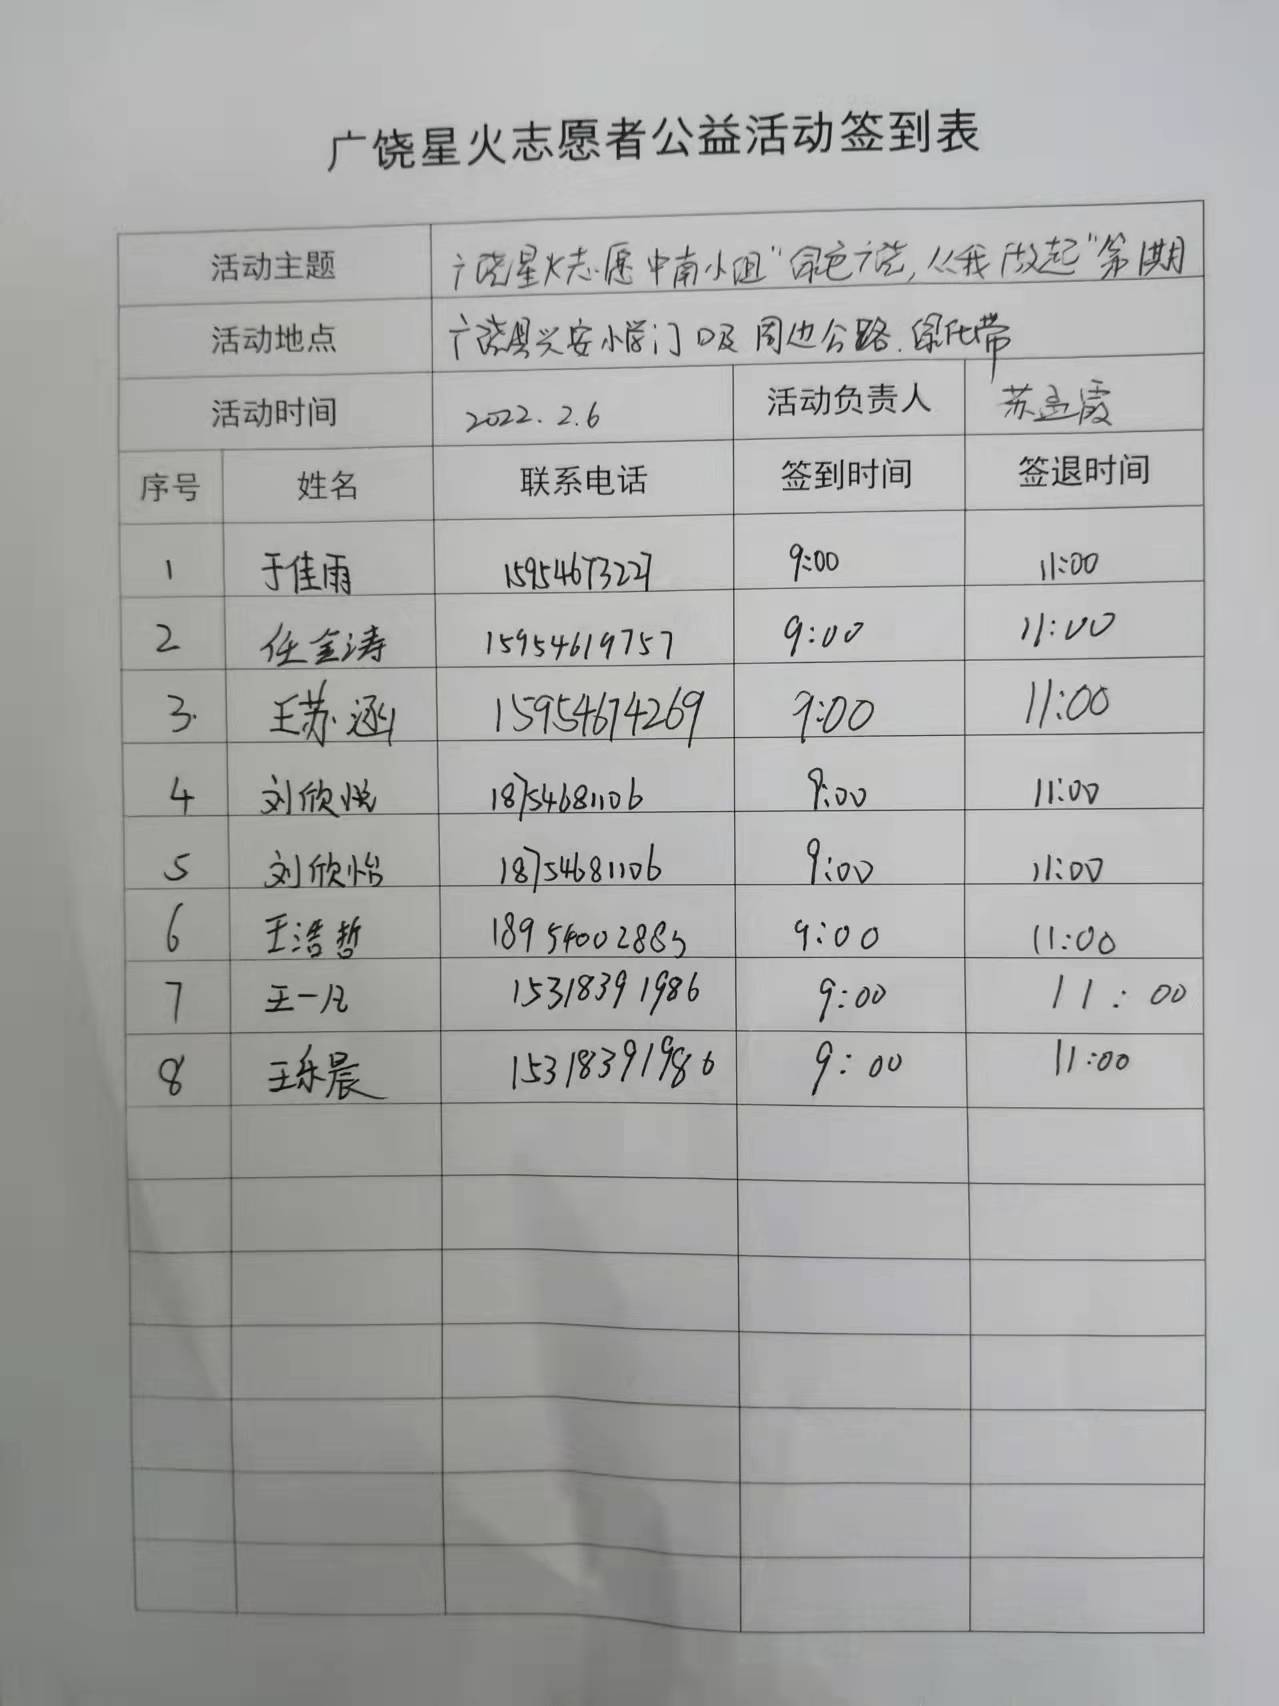 广饶星火志愿者公益活动签到表
活动主题 广饶星火志愿中南小组"绿色广饶,从我做起"第1期
活动地点 广饶县兴安小学门口及周边公路.绿化带
活动时间 2022.2.6 活动负责人 苏孟霞
序号 姓名 联系电话 签到时间 签退时间
1 于佳雨 9:00 11:00
2 任金涛 15954619757 9:00 11:00
3. 王苏涵 15954674269 9:00 11:00
4 刘欣悦 18754681106 9:00 11:00
5 刘欣怡 18754681106 9:00 11:00
6 王浩哲 18954002885 9:00 11:00
7 王一凡 15318391986 9:00 11:00
8 王乐晨 15318391986 9:00 11:00